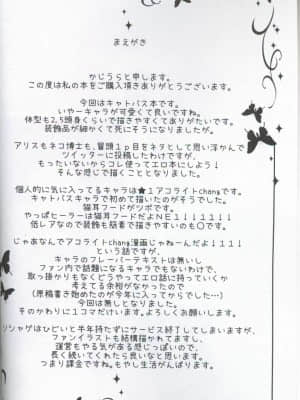 まえがき
かじうらと申します。
この度は私の本をご購入頂きありがとうございます。
今回はキャトバス本です。
いやーキャラが可愛くて良いですね。
体型も2.5頭身くらいで描きやすくてありがたいです。
装飾品が細かくて死にそうになりましたが。
アリスもネコ博士も、冒頭1p目をネタとして思い浮かんで
ツイッターに投稿したわけですが、
もったいないからコレ使ってエロ本にしよう！
そんな感じで描くこととなりました。
個人的に気に入ってるキャラは★1アコライトchangです。
キャトバスキャラで初めて描いたのがそうでした。
猫耳フードがツボです。
やっぱヒーラーは猫耳フードだよNE！！！！！！
低レアなので装飾も簡素で描きやすいのも○です。
じゃあなんでアコライトchang漫画じゃねーんだよ！！！！
という話ですが、
キャラのフレーバーテキストは無いし
ファン内で話題になるキャラでもないわけで、
取っ掛かりもなくどうやってエロ話に持っていくか
考える余裕がなかったので
(原稿書き始めたのが今年に入ってからでした…)
今回は無しとなりました。
そのかわりに1コマだけいます。よろしくお願いします。
ソシャゲはひどいと半年持たずにサービス終了してしまいますが、
ファンイラストも結構描かれてますし、
運営もやる気がある感じっぽいので、
長く続いてくれたら良いなと思います。
つまり課金ですね。もやし生活がんばります。